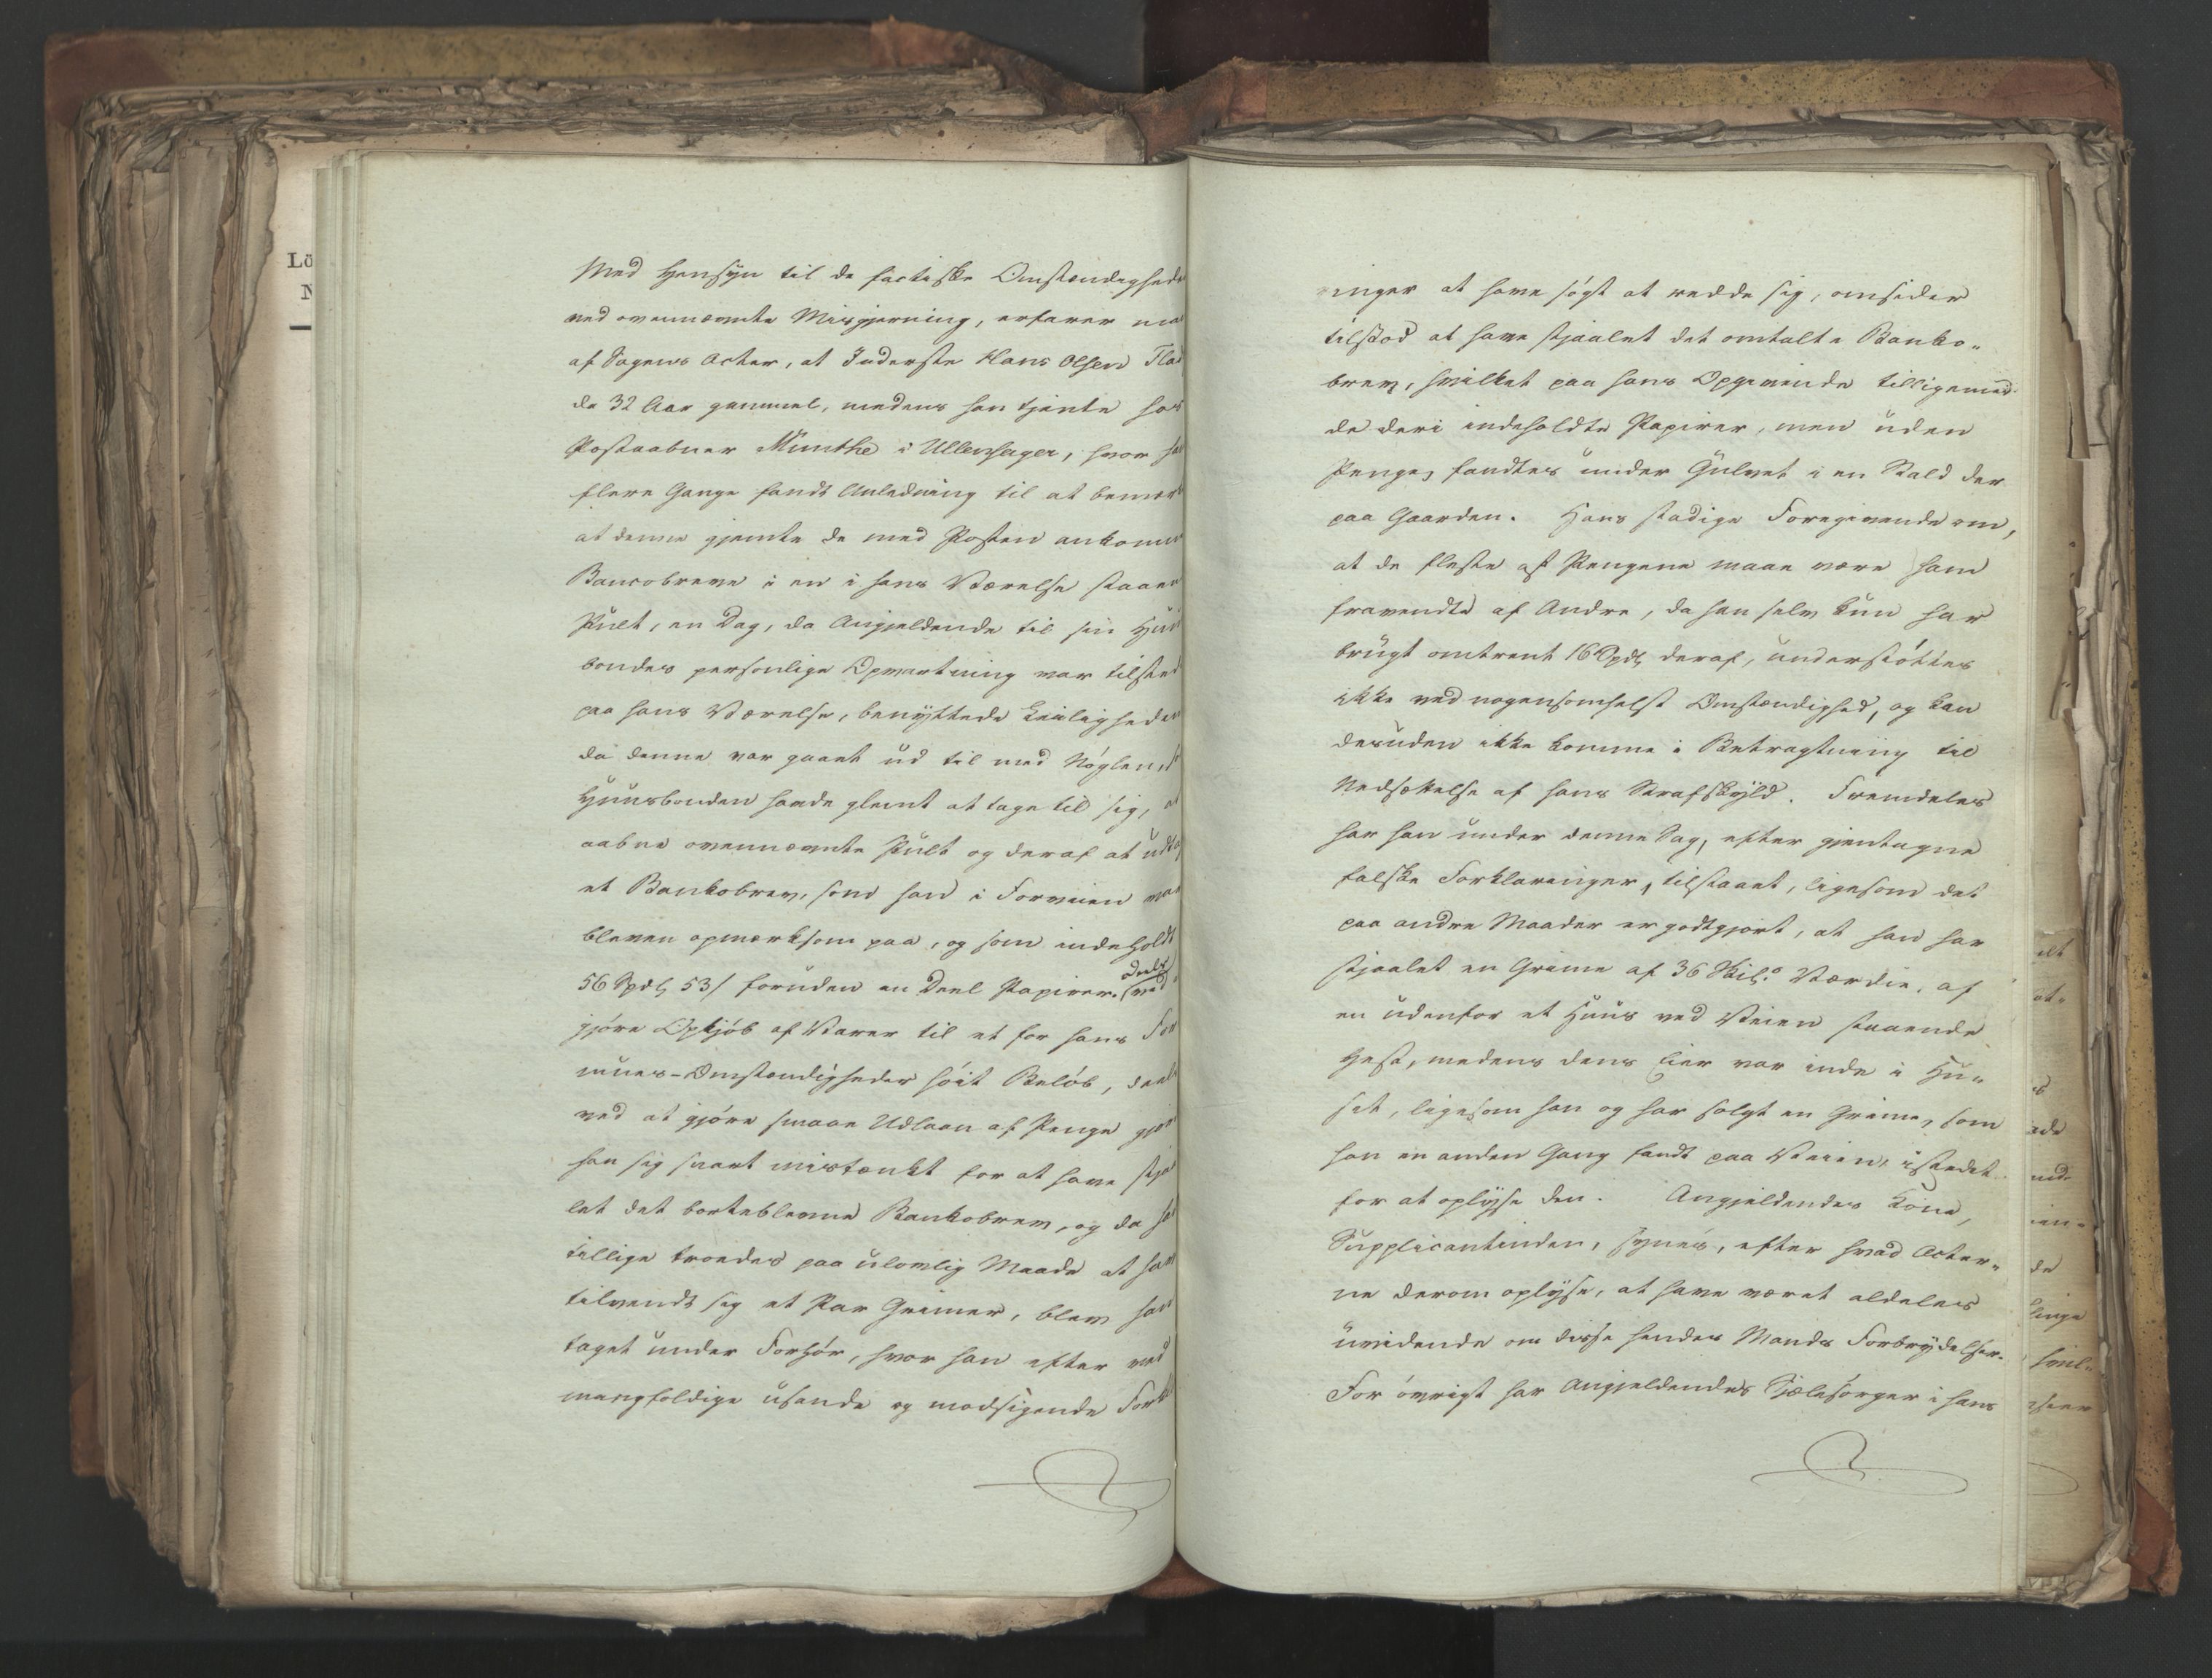 Lö
N
Med Hensyn til de factiske Omstændighede
ved ovennævnte Misgjerning, erfarer ma
af Sagens Acter, at Inderste Hans Olsen Fla
da 32 Aar gammel, medens han tjente hos
Postaabner Munthe i Ullensager, hvor ha
flere Gange fandt Anledning til at bemærk
at denne gjemte de med Posten ankomn
Bancobreve i en i hans Værelse staaen
Pult, en Dag, da Angjeldende til sin Huus
bondes personlige Opvartning var tilsted
paa hans Værelse, benyttede Leiligheden
da denne var gaaet ud til med Nøglen, s
Huusbonden havde glemt at tage til sig, at
aabne ovennævnte Pult og deraf at udta
et Bankobrev, som han i Forveien var
bleven opmærksom paa, og som indeholdt
56 Spdlr 53 / foruden en Deel Papirer. Deels
ved
gjøre Opkjøb af Varer til et for hans For
mues-Omstændigheder høit Beløb, deels
ved at gjøre smaae Udlaan af Penge gjor
han sig snart mistænkt for at have stjaa
let det bortblevne Bankobrev, og da ha
tillige troedes paa ulovlig Maade at have
tilvendt sig et Par Grimer, blev han
taget under Forhør, hvor han efter ved
mangfoldige usande og modsigende Forkl
ringer at have søgt at redde sig, omsider
tilstod at have stjaalet det omtalte Banko-
brev, hvilket paa hans Opgivende tilligemed
de deri indeholdte Papirer, men uden
Penge, fandtes under Gulvet i en Stald der
paa Gaarden. Hans stadige Foregivende om,
at de fleste af Pengene maae være ham
fravendte af Andre, da han selv kun har
brugt omtrent 16 Spdlr deraf, understøttes
ikke ved nogensomhelst Omstændighed, og kan
desuden ikke komme i Betragtning til
Nedsættelse af hans Strafskyld. Fremdeles
har han under denne Sag, efter gjentagne
falske Forklaringer, tilstaaet, ligesom det
paa andre Maader er godtgjort, at han har
stjaalet en Grime af 36 Skil:s Værdie, af
en udenfor et Huus ved Veien staaende
Hest, medens dens Eier var inde i Hu-
set, ligesom han og har solgt en Grime, som
han en anden Gang fandt paa Veien, istedet
for at oplyse den. Angjeldendes Kone,
Supplicantinden, synes, efter hvad Acter-
ne derom oplyse, at have været aldeles
uvidende om disse hendes Mands Forbrydelser.
For øvrigt har Angjeldendes Sjælesørger i hans